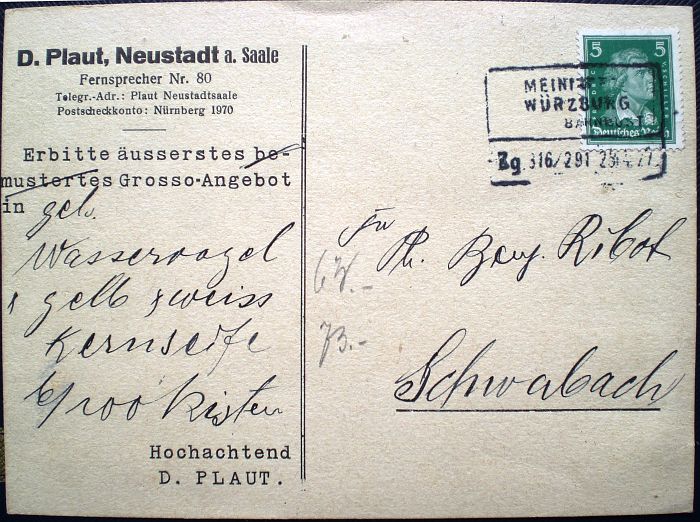 D. Plaut, Neustadt a. Saale
Fernsprecher Nr. 80
Telegr.-Adr.: Plaut Neustadtsaale
Postscheckkonto: Nürnberg 1970
Erbitte äusserstes be-
mustertes Grosso-Angebot
in gelb.
Wasservogel
gelb & weiss
Kernseife
b/100 Kisten
Hochachtend
D. PLAUT.
5 5
Deutsches Reich
WÜRZBURG
Zg. 316/291
Fa
Ph. Benj. Ribot
Schwabach
73.-